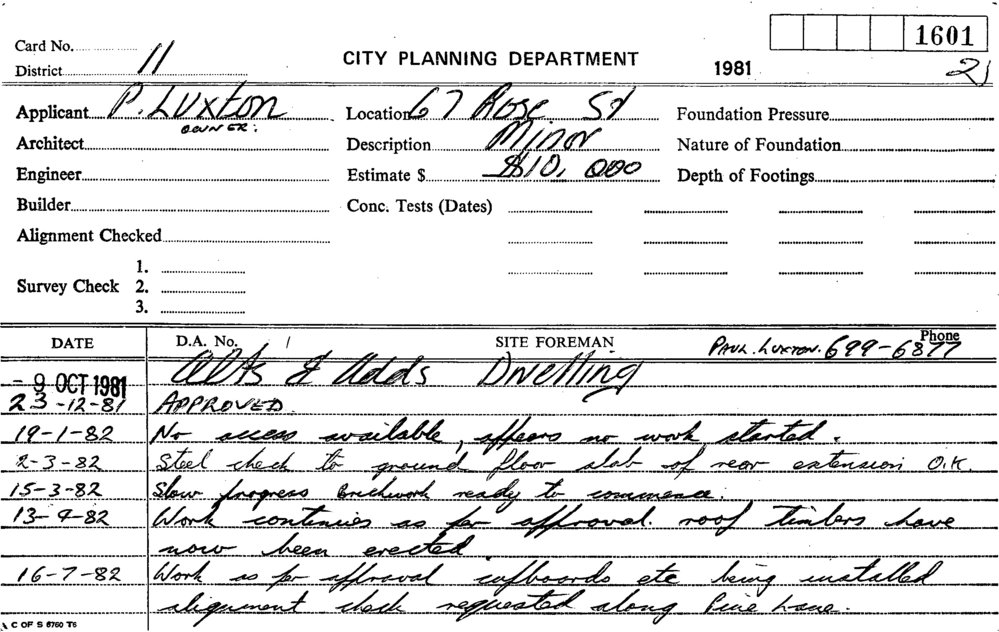 1601
Card No.
District 11
CITY PLANNING DEPARTMENT
1981
21
Applicant P. Luxton
OWNER.
Location 67 Rose St
Foundation Pressure
Architect
Description Minor
Nature of Foundation
Engineer
Estimate $ $10,000
Depth of Footings
Builder
Conc. Tests (Dates)
Alignment Checked
Survey Check 1.
2.
3.
DATE D.A. No. / SITE FOREMAN PAUL. LUXTON. 699-6877 Phone
- 9 OCT 1981 Alts & Adds Dwelling
23-12-81 APPROVED.
19-1-82 No access available, appears no work started.
2-3-82 Steel check to ground floor slab of rear extension O.K.
15-3-82 Slow progress Brickwork ready to commence.
13-4-82 Work continues as per approval. roof timbers have
now been erected.
16-7-82 Work as per approval cupboards etc being installed
alignment check requested along Pine Lane.
C OF S 6760 T6